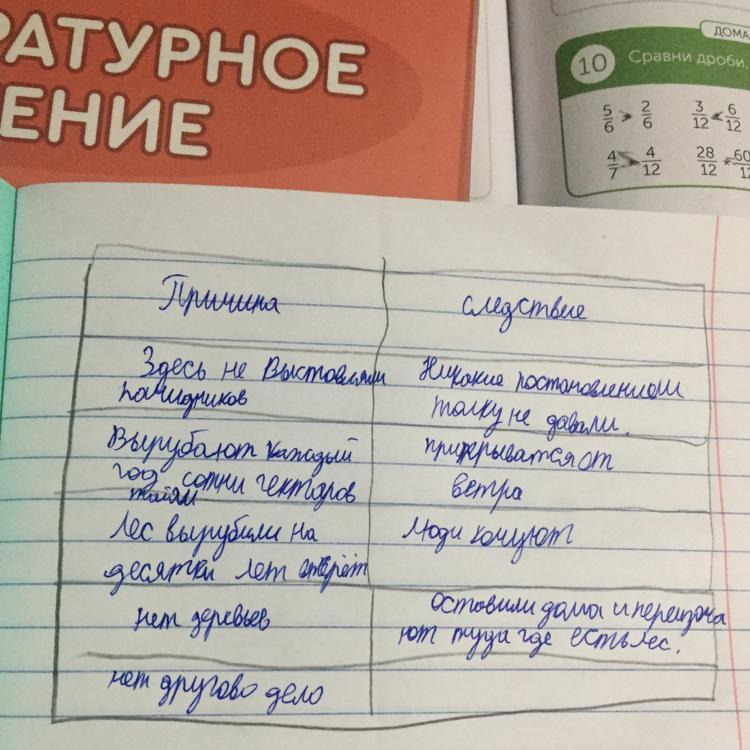 РАТУРНОЕ
ЕНИЕ
ДОМА
10 Сравни дроби.
5/6 > 2/6 3/12 < 6/12
4/7 > 4/12 28/12 60/12
Причина
следствие
Здесь не Выставляли
Никакие постановлением
толку не давали.
Вырубают каждый
год сотни гекторов
прикрыватся от
ветра
Лес вырубили на
десятки лет вперёт
люди кочуют
нет деревьев
оставили дома и
ют туда где есть лес.
нет другово дело